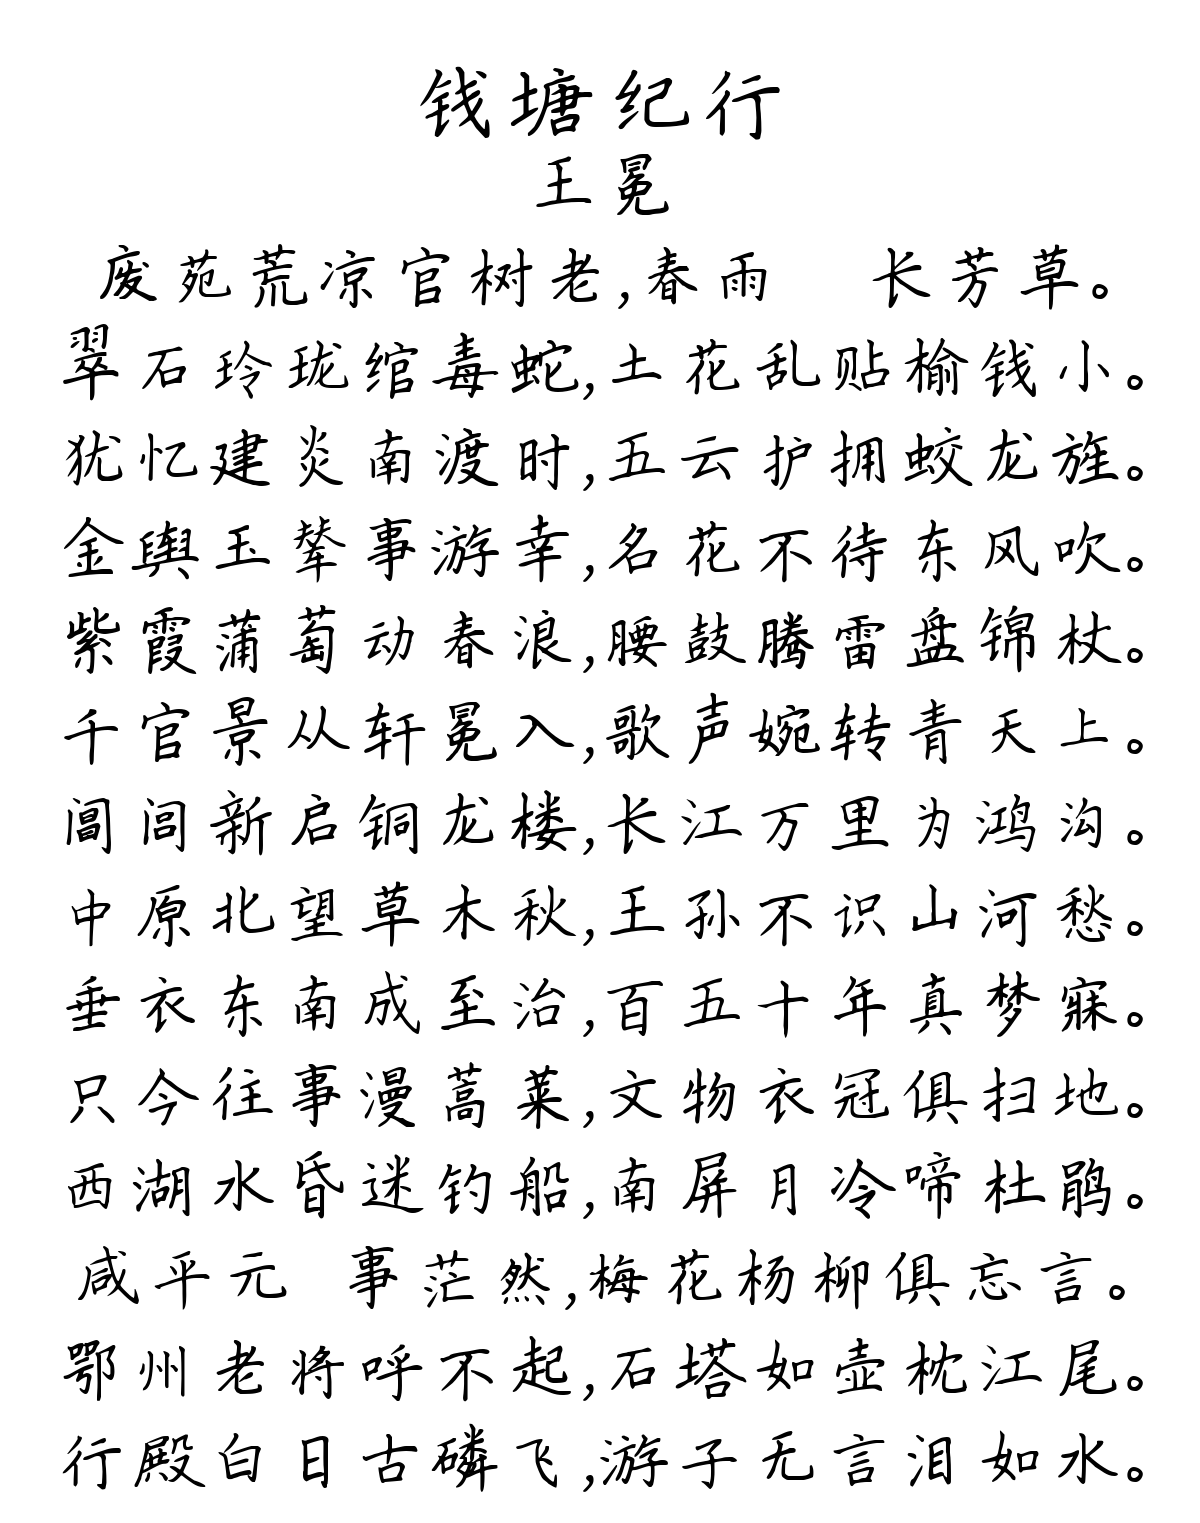 钱塘纪行
王冕
废苑荒凉官树老,春雨 长芳草。
翠石玲珑绾毒蛇,土花乱贴榆钱小。
犹忆建炎南渡时,五云护拥蛟龙旌。
金舆玉辇事游幸,名花不待东风吹。
紫霞蒲萄动春浪,腰鼓腾雷盘锦杖。
千官景从轩冕入,歌声婉转青天上。
阊闾新启铜龙楼,长江万里为鸿沟。
中原北望草木秋,王孙不识山河愁。
垂衣东南成至治,百五十年真梦寐。
只今往事漫蒿莱,文物衣冠俱扫地。
西湖水昏迷钓船,南屏月冷啼杜鹃。
咸平元 事茫然,梅花杨柳俱忘言。
鄂州老将呼不起,石塔如壶枕江尾。
行殿白日古磷飞,游子无言泪如水。